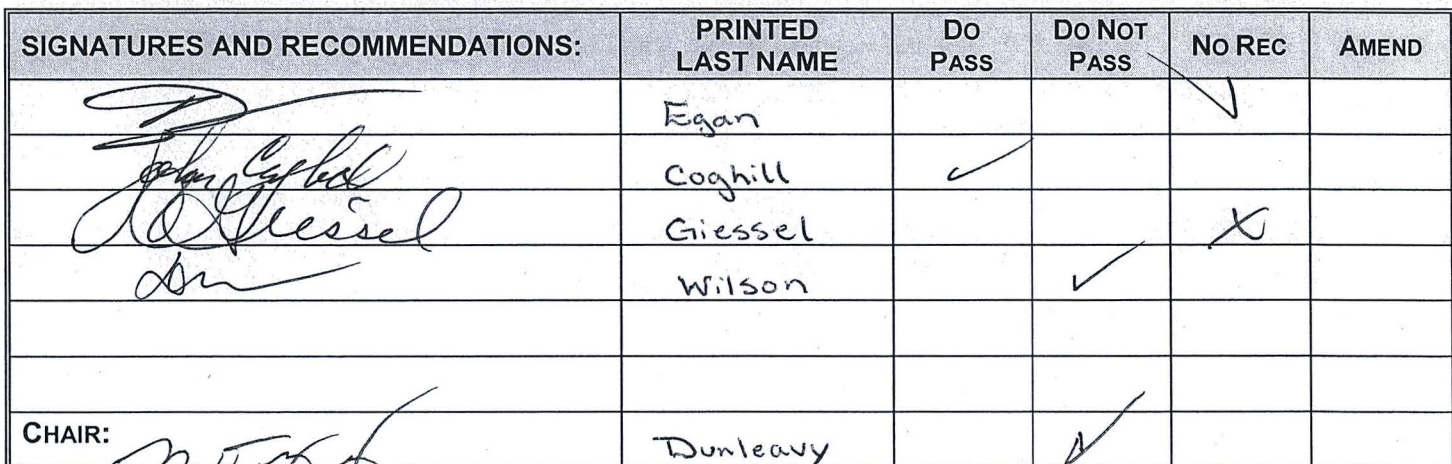 SIGNATURES AND RECOMMENDATIONS: PRINTED LAST NAME DO PASS DO NOT PASS NO REC AMEND
Egan ✓
John Coghill Coghill ✓
Giessel Giessel X
Wilson ✓
CHAIR: Dunleavy ✓